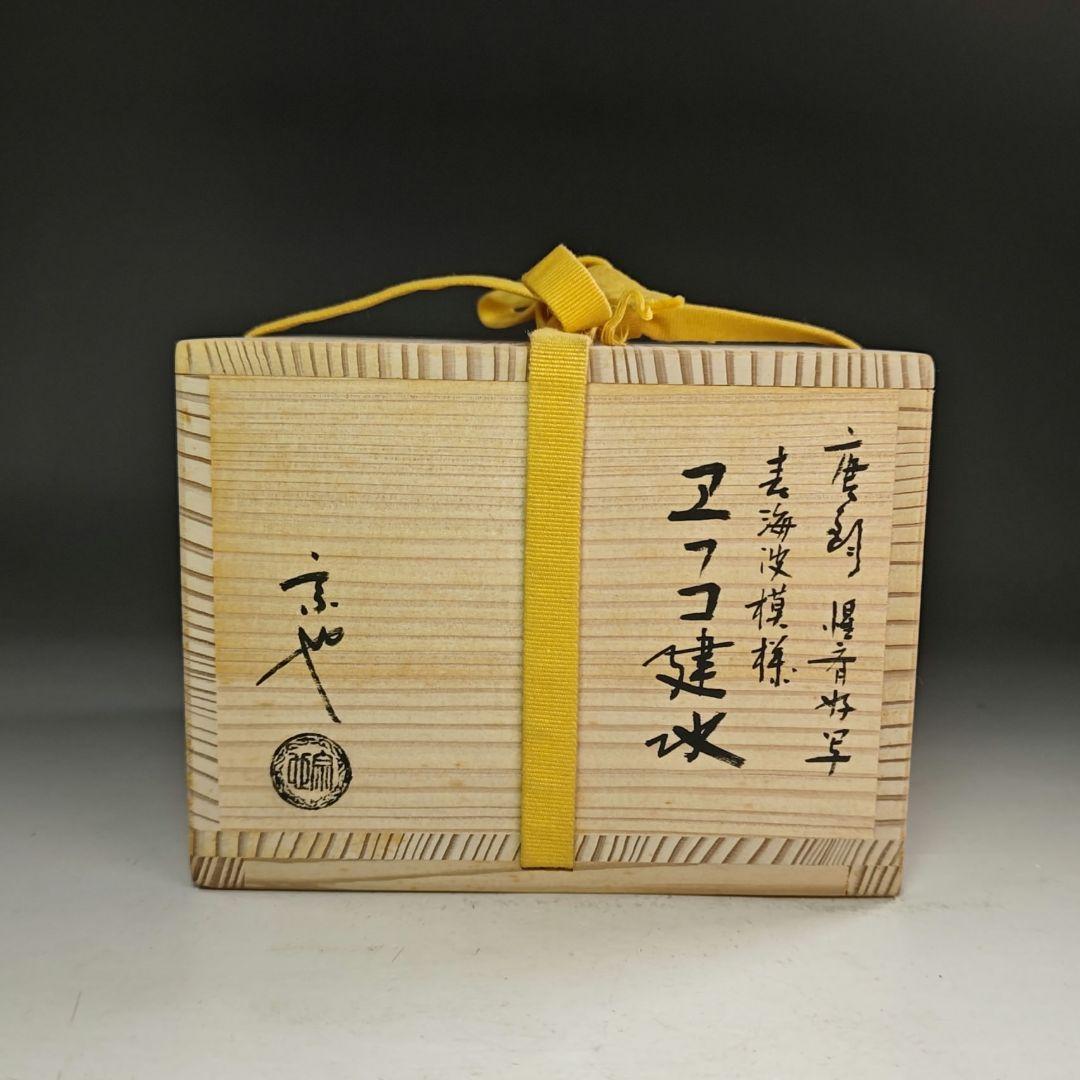 唐銅 惺斎好写
青海波模様
エフゴ建水
宗也